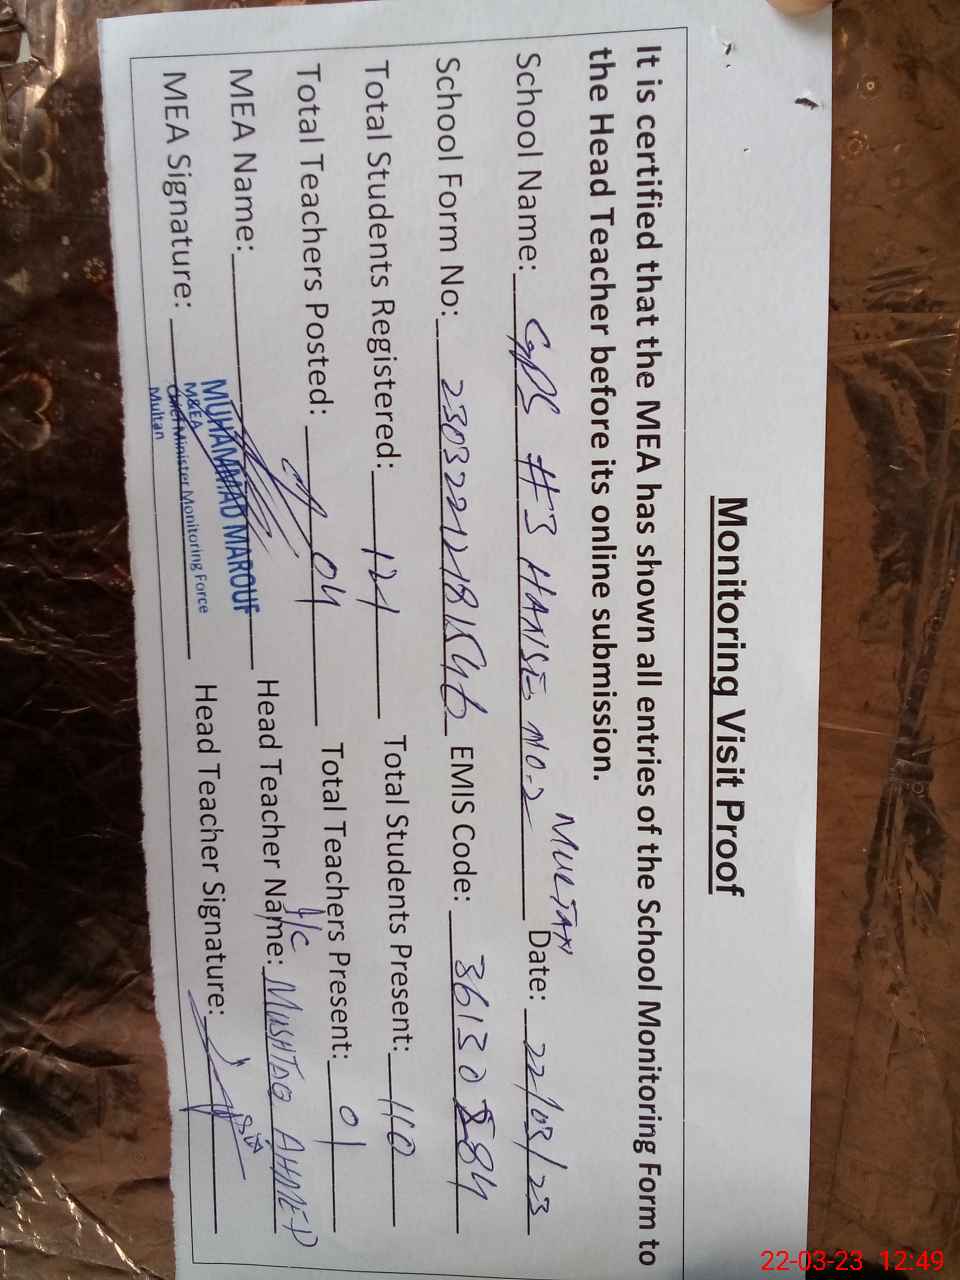 Monitoring Visit Proof
It is certified that the MEA has shown all entries of the School Monitoring Form to
the Head Teacher before its online submission.
MULTAN
School Name: GPS #3 HANSE, NO.2 Date: 22/03/23
School Form No: EMIS Code: 36130884
Total Students Registered: 121 Total Students Present: 110
Total Teachers Posted: 04 Total Teachers Present: 01
I/C
MEA Name: MUHAMMAD MAROUF Head Teacher Name: MUSHTAQ AHMED
M&EA
MEA Signature: Chief Minister Monitoring Force Head Teacher Signature:
Multan
22-03-23 12:49